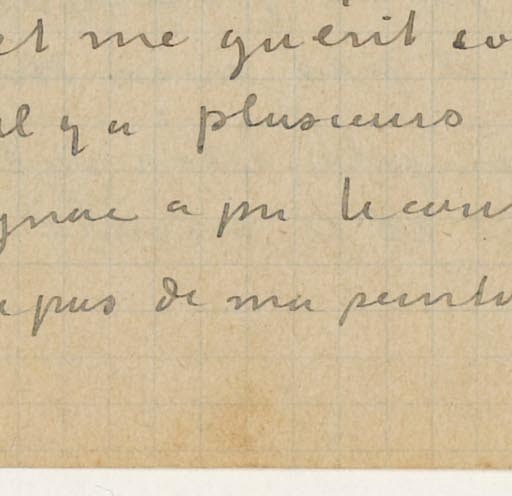 et me guérit co
il y a plusieurs
gnac a pu le con
pas de ma peintu